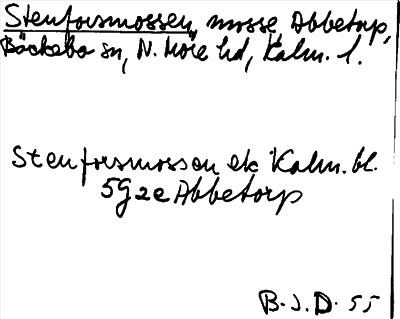 Stenforsmossen, mosse Abbetorp,
Bäckebo sn, N. Möre hd, Kalm. l.
Stenforsmossen ek Kalm. bl.
5G2e Abbetorp
B.J.D. 55